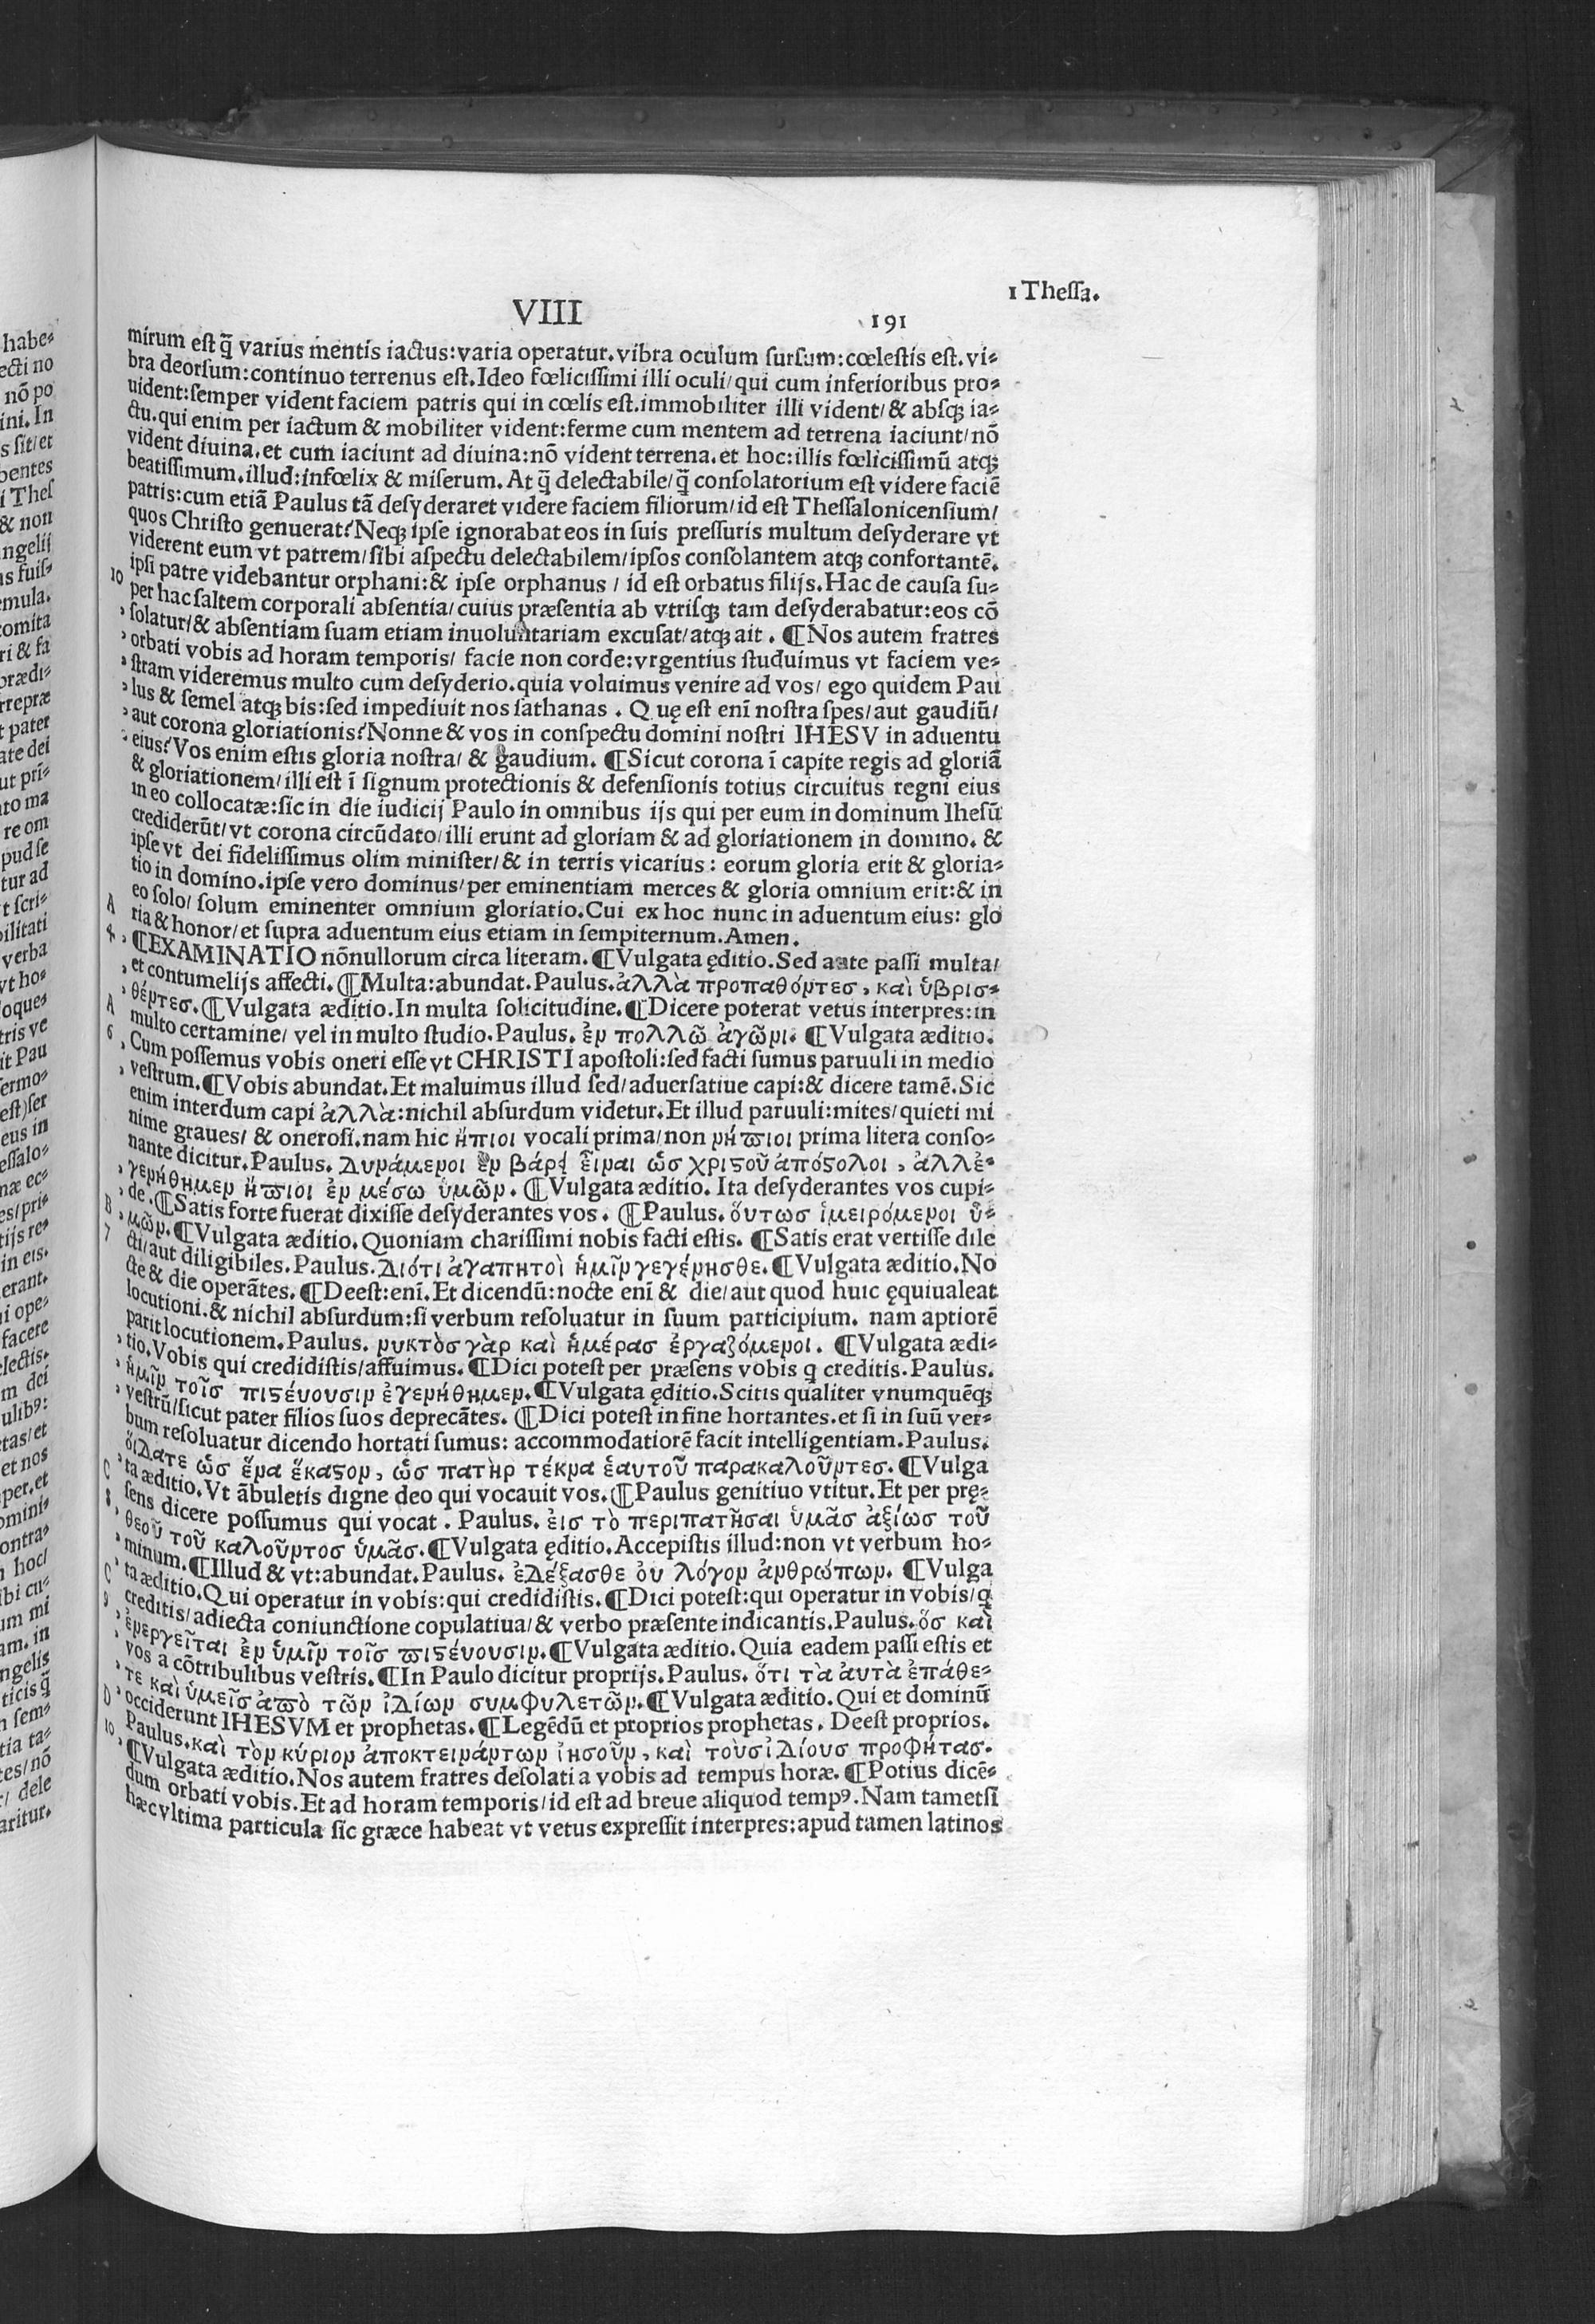 1 Thessa.
VIII 191
mirum est q̃ varius mentis iactus:varia operatur.vibra oculum sursum:cœlestis est.vi-
bra deorsum:continuo terrenus est.Ideo fœlicissimi illi oculi/qui cum inferioribus pro-
uident:semper vident faciem patris qui in cœlis est.immobiliter illi vident/& absqꝫ ia-
ctu.qui enim per iactum & mobiliter vident:ferme cum mentem ad terrena iaciunt/nõ
vident diuina.et cum iaciunt ad diuina:nõ vident terrena.et hoc:illis fœlicissimũ atqꝫ
beatissimum.illud:infœlix & miserum.At q̃ delectabile/q̃ consolatorium est videre faciẽ
patris:cum etiã Paulus tã desyderaret videre faciem filiorum/id est Thessalonicensium/
quos Christo genuerat?Neqꝫ ipse ignorabat eos in suis pressuris multum desyderare vt
viderent eum vt patrem/sibi aspectu delectabilem/ipsos consolantem atqꝫ confortantẽ.
ipsi patre videbantur orphani:& ipse orphanus / id est orbatus filijs.Hac de causa su-
10 per hac saltem corporali absentia/cuius præsentia ab vtrisqꝫ tam desyderabatur:eos cõ
solatur/& absentiam suam etiam inuoluntariam excusat/atqꝫ ait . ¶Nos autem fratres
orbati vobis ad horam temporis/ facie non corde:vrgentius studuimus vt faciem ve-
stram videremus multo cum desyderio.quia voluimus venire ad vos/ ego quidem Pau
lus & semel atqꝫ bis:sed impediuit nos sathanas . Quę est enĩ nostra spes/aut gaudiũ/
aut corona gloriationis?Nonne & vos in conspectu domini nostri IHESV in aduentu
eius?Vos enim estis gloria nostra/ & gaudium. ¶Sicut corona ĩ capite regis ad gloriã
& gloriationem/illi est ĩ signum protectionis & defensionis totius circuitus regni eius
in eo collocatæ:sic in die iudicij Paulo in omnibus ijs qui per eum in dominum Ihesũ
crediderũt/vt corona circũdato/illi erunt ad gloriam & ad gloriationem in domino. &
ipse vt dei fidelissimus olim minister/& in terris vicarius: eorum gloria erit & gloria-
tio in domino.ipse vero dominus/per eminentiam merces & gloria omnium erit:& in
eo solo/ solum eminenter omnium gloriatio.Cui ex hoc nunc in aduentum eius: glo
A ria & honor/et supra aduentum eius etiam in sempiternum.Amen.
4 ¶EXAMINATIO nõnullorum circa literam.¶Vulgata ędítio.Sed ante passi multa/
et contumelijs affecti.¶Multa:abundat.Paulus.ἀλλὰ προπαθόντεσ, καὶ ὑβρισ-
θέντεσ.¶Vulgata æditio.In multa solicitudine.¶Dicere poterat vetus interpres:in
A multo certamine/ vel in multo studio.Paulus. ἐν πολλῶ ἀγῶνι. ¶Vulgata æditio.
6 Cum possemus vobis oneri esse vt CHRISTI apostoli:sed facti sumus paruuli in medio
vestrum.¶Vobis abundat.Et maluimus illud sed/aduersatiue capi:& dicere tamẽ.Sic
enim interdum capi ἀλλὰ:nichil absurdum videtur.Et illud paruuli:mites/quieti mi
nime graues/ & onerosi.nam hic ἤπιοι vocali prima/non νήϖιοι prima litera conso-
nante dicitur.Paulus. Δυνάμενοι ἐν βάρει εἶναι ὡσ χριϛοῦ ἀπόϛολοι , ἀλλἐ-
γενήθημεν ἤϖιοι ἐν μέσω ὑμῶν. ¶Vulgata æditio. Ita desyderantes vos cupi-
de.¶Satis forte fuerat dixisse desyderantes vos. ¶Paulus. ὅυτωσ ἱμειρόμενοι ὑ-
B μῶν.¶Vulgata æditio.Quoniam charissimi nobis facti estis. ¶Satis erat vertisse dile
7 cti/aut diligibiles.Paulus.Διότι ἀγαπητοὶ ἡμῖν γεγένησθε.¶Vulgata æditio.No
cte & die operãtes.¶Deest:enĩ.Et dicendũ:nocte enĩ & die/aut quod huic ęquiualeat
locutioni.& nichil absurdum:si verbum resoluatur in suum participium. nam aptiorẽ
parit locutionem.Paulus. νυκτὸσ γὰρ καὶ ἡμέρασ ἐργαζόμενοι. ¶Vulgata ædi-
tio.Vobis qui credidistis/affuimus.¶Dici potest per præsens vobis q creditis.Paulus.
ἡμῖν τοῖσ πιϛέυουσιν ἐγενήθημεν.¶Vulgata ędítio.Scitis qualiter vnumquẽqꝫ
vestrũ/sicut pater filios suos deprecãtes. ¶Dici potest in fine hortantes.et si in suũ ver-
bum resoluatur dicendo hortati sumus: accommodatiorẽ facit intelligentiam.Paulus.
ὅιδατε ὡσ ἕνα ἕκαϛον, ὡσ πατὴρ τέκνα ἑαυτοῦ παρακαλοῦντεσ.¶Vulga
C ta æditio.Vt ãbuletis digne deo qui vocauit vos.¶Paulus genitiuo vtitur.Et per prę-
8 sens dicere possumus qui vocat . Paulus. ἐισ τὸ περιπατῆσαι ὑμᾶσ ἀξίωσ τοῦ
θεοῦ τοῦ καλοῦντοσ ὑμᾶσ.¶Vulgata ędítio.Accepistis illud:non vt verbum ho-
minum.¶Illud & vt:abundat.Paulus. ἐδέξασθε ὀυ λόγον ἀνθρώπων. ¶Vulga
C ta æditio.Qui operatur in vobis:qui credidistis.¶Dici potest:qui operatur in vobis/q
9 creditis/adiecta coniunctione copulatiua/& verbo præsente indicantis.Paulus.ὅσ καὶ
ἐνεργεῖται ἐν ὑμῖν τοῖσ ϖιϛέυουσιν.¶Vulgata æditio.Quia eadem passi estis et
vos a cõtribulibus vestris.¶In Paulo dicitur proprijs.Paulus. ὅτι τὰ ἀυτὰ ἐπάθε-
τε καὶ ὑμεῖσ ἀϖὸ τῶν ἰδίων συμφυλετῶν.¶Vulgata æditio.Qui et dominũ
D occiderunt IHESVM et prophetas.¶Legẽdũ et proprios prophetas. Deest proprios.
10 Paulus.καὶ τὸν κύριον ἀποκτεινάντων ἰησοῦν, καὶ τοὺσ ἰδίουσ προφήτασ.
¶Vulgata æditio.Nos autem fratres desolati a vobis ad tempus horæ. ¶Potius dicẽ-
dum orbati vobis.Et ad horam temporis/id est ad breue aliquod tempꝰ.Nam tametsi
hæc vltima particula sic græce habeat vt vetus expressit interpres:apud tamen latinos